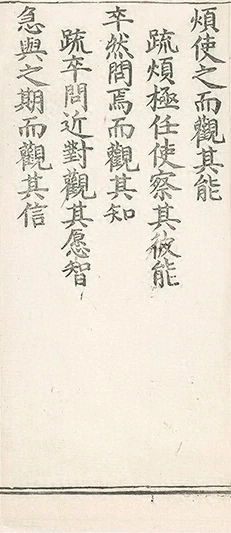 煩使之而觀其能
疏煩極任使察其彼能
卒然問焉而觀其知
疏卒問近對觀其愿智
急與之期而觀其信